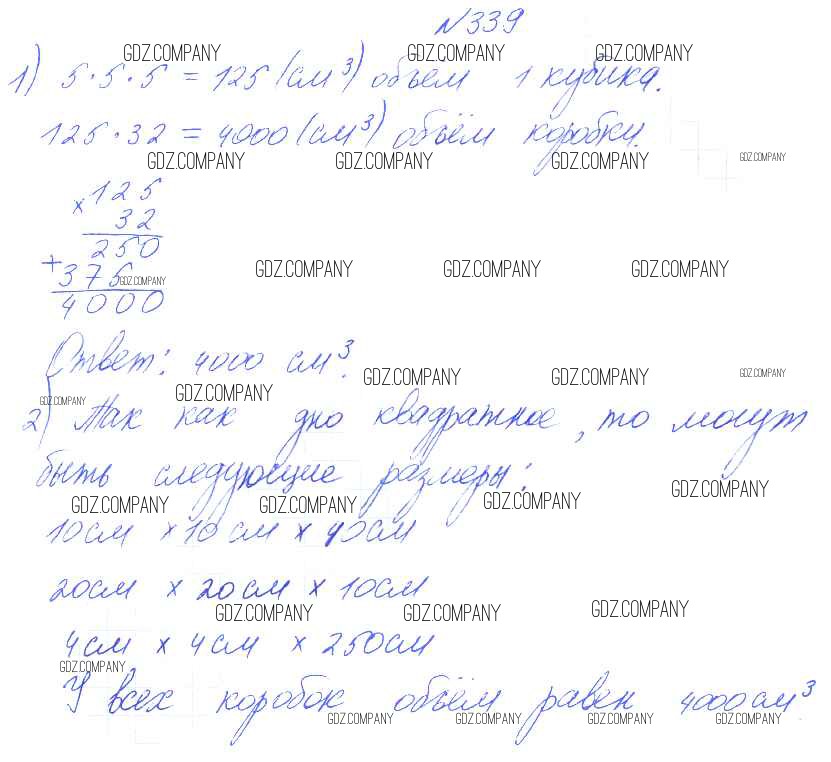 №339
GDZ.COMPANY GDZ.COMPANY GDZ.COMPANY
1) 5·5·5 = 125 (см³) объём 1 кубика.
125·32 = 4000 (см³) объём коробки.
GDZ.COMPANY GDZ.COMPANY GDZ.COMPANY GDZ.COMPANY
× 125
32
250
GDZ.COMPANY GDZ.COMPANY GDZ.COMPANY
+ 375 GDZ.COMPANY
4000
Ответ: 4000 см³.
GDZ.COMPANY GDZ.COMPANY GDZ.COMPANY
GDZ.COMPANY GDZ.COMPANY
2) Так как дно квадратное, то могут
быть следующие размеры:
GDZ.COMPANY GDZ.COMPANY GDZ.COMPANY GDZ.COMPANY
10см × 10см × 40см
20см × 20см × 10см
GDZ.COMPANY GDZ.COMPANY GDZ.COMPANY
4см × 4см × 250см
GDZ.COMPANY
У всех коробок объём равен 4000см³
GDZ.COMPANY GDZ.COMPANY GDZ.COMPANY GDZ.COMPANY